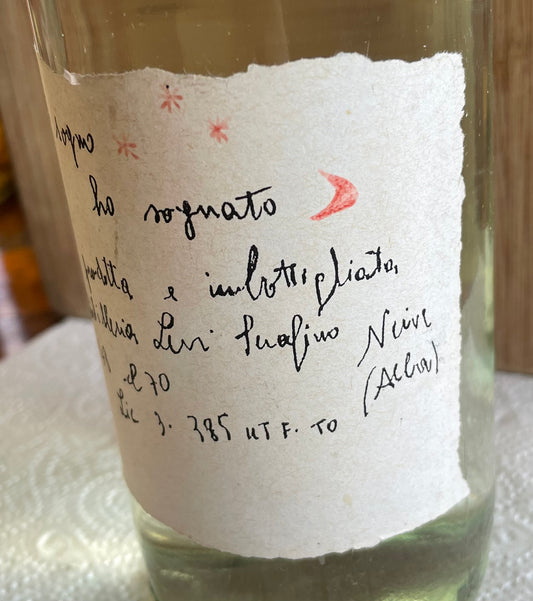 sogno
ho sognato
prodotta e imbottigliata
distilleria Levi Serafino Neive
cl 70 (Alba)
Lic 3. 385 UTF. TO